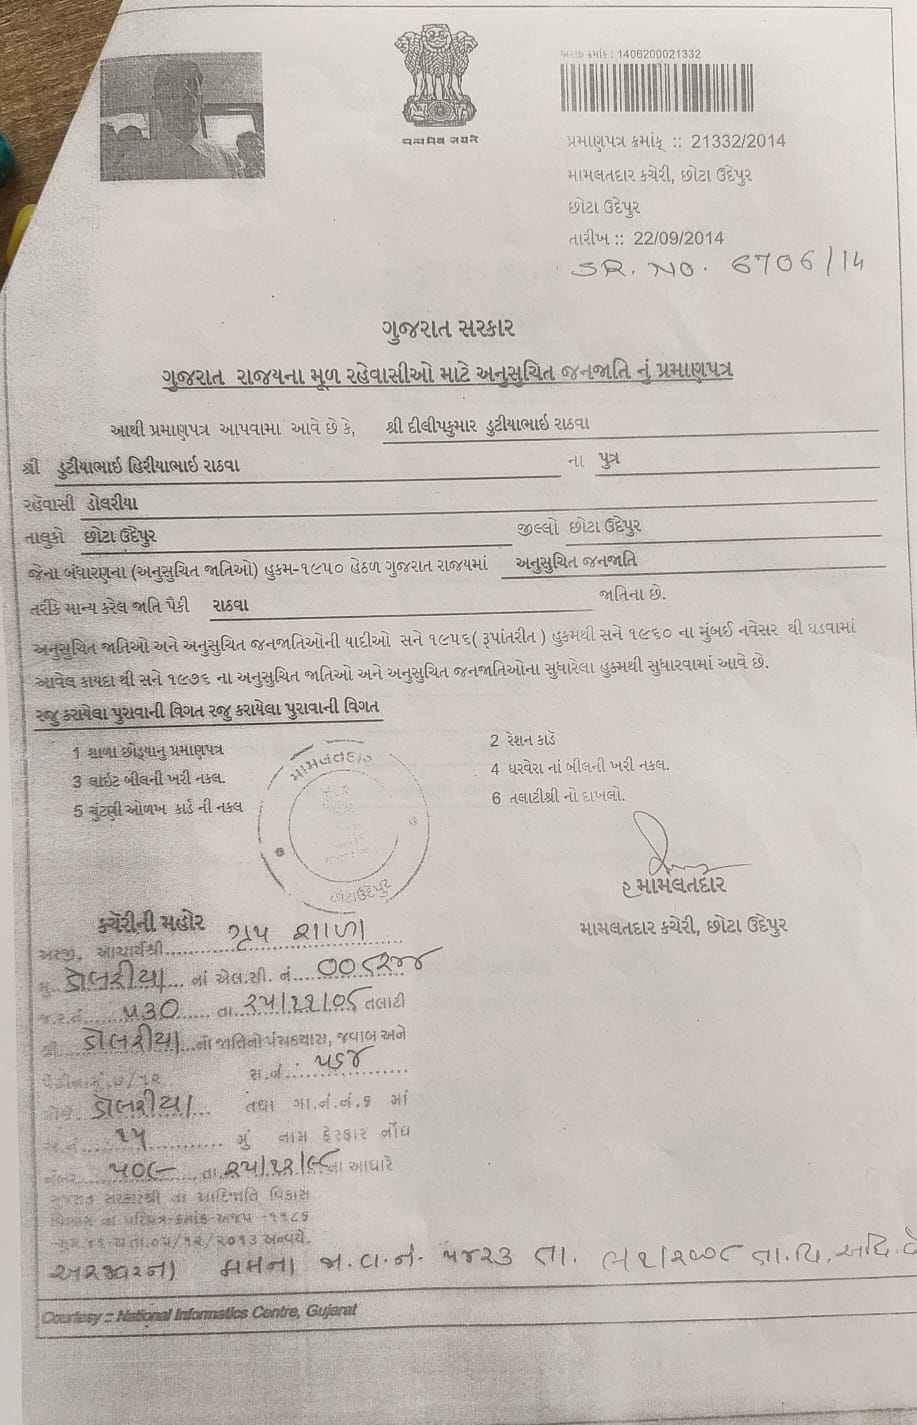 सत्यमेव जयते
અરજી ક્રમાંક : 1406200021332
પ્રમાણપત્ર ક્રમાંક :: 21332/2014
મામલતદાર કચેરી, છોટા ઉદેપુર
છોટા ઉદેપુર
તારીખ :: 22/09/2014
SR. NO. 6706/14
ગુજરાત સરકાર
ગુજરાત રાજયના મૂળ રહેવાસીઓ માટે અનુસુચિત જનજાતિ નું પ્રમાણપત્ર
આથી પ્રમાણપત્ર આપવામા આવે છે કે, શ્રી દીલીપકુમાર ડુટીયાભાઇ રાઠવા
શ્રી ડુટીયાભાઇ હિરીયાભાઇ રાઠવા ના પુત્ર
રહેવાસી ડોલરીયા
તાલુકો છોટા ઉદેપુર જીલ્લો છોટા ઉદેપુર
જેના બંધારણના (અનુસુચિત જાતિઓ) હુકમ-૧૯૫૦ હેઠળ ગુજરાત રાજયમાં અનુસુચિત જનજાતિ
તરીકે માન્ય કરેલ જાતિ પૈકી રાઠવા જાતિના છે.
અનુસુચિત જાતિઓ અને અનુસુચિત જનજાતિઓની યાદીઓ સને ૧૯૫૬( રૂપાંતરીત ) હુકમથી સને ૧૯૬૦ ના મુંબઈ નવેસર થી ઘડવામાં
આવેલ કાયદા થી સને ૧૯૭૬ ના અનુસુચિત જાતિઓ અને અનુસુચિત જનજાતિઓના સુધારેલા હુકમથી સુધારવામાં આવે છે.
રજુ કરાયેલા પુરાવાની વિગત રજુ કરાયેલા પુરાવાની વિગત
1 શાળા છોડ્યાનુ પ્રમાણપત્ર
2 રેશન કાર્ડ
3 લાઇટ બીલની ખરી નકલ.
4 ઘરવેરા નાં બીલની ખરી નકલ.
5 ચુંટણી ઓળખ કાર્ડ ની નકલ
6 તલાટીશ્રી નો દાખલો.
મામલતદાર
છોટાઉદેપુર
હ મામલતદાર
મામલતદાર કચેરી, છોટા ઉદેપુર
કચેરીની મહોર
અરજી, આચાર્યશ્રી ગ્રુપ શાળા
મુ. ડોલરીયા નાં એલ.સી. નં.
જ.ર.નં. ૫૩૦ તા. તલાટી
શ્રી ડોલરીયા નો જાતિનો પંચકયાસ, જવાબ અને
સ.નં.
ડોલરીયા તથા ગા.ન.નં.૬ માં
૧૫ મું નામ ફેરફાર નોંધ
નંબર ૫૦૯ તા. ના આધારે
ગુજરાત સરકારશ્રી ના આદિજાતિ વિકાસ
વિભાગ ના પરિપત્ર-ક્રમાંક-અજપ -૧૧૮૬
તા.૦૫/૧૨/૨૦૧૩ અન્વયે.
અરજદારના જા.વ.નં. ૫૪૨૩ તા.
Courtesy :: National Informatics Centre, Gujarat